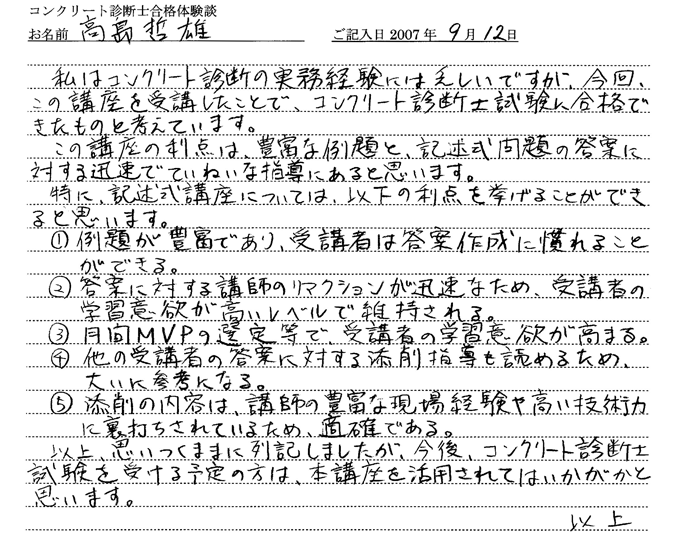 コンクリート診断士合格体験談
お名前 高畠哲雄 ご記入日2007年9月12日
私はコンクリート診断の実務経験には乏しいですが、今回、
この講座を受講したことで、コンクリート診断士試験に合格で
きたものと考えています。
この講座の利点は、豊富な例題と、記述式問題の答案に
対する迅速でていねいな指導にあると思います。
特に、記述式講座については、以下の利点を挙げることができ
ると思います。
①例題が豊富であり、受講者は答案作成に慣れること
ができる。
②答案に対する講師のリアクションが迅速なため、受講者の
学習意欲が高いレベルで維持される。
③月間MVPの選定等で、受講者の学習意欲が高まる。
④他の受講者の答案に対する添削指導も読めるため、
大いに参考になる。
⑤添削の内容は、講師の豊富な現場経験や高い技術力
に裏打ちされているため、適確である。
以上、思いつくままに列記しましたが、今後、コンクリート診断士
試験を受ける予定の方は、本講座を活用されてはいかがかと
思います。
以上